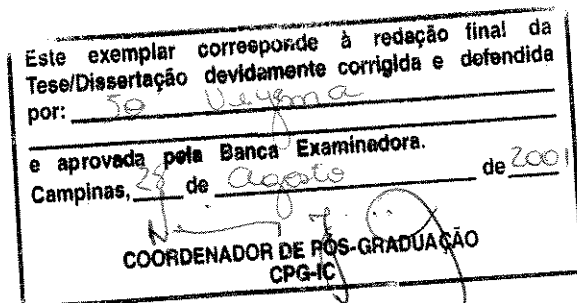 Este exemplar corresponde à redação final da
Tese/Dissertação devidamente corrigida e defendida
por: So Ueyama
e aprovada pela Banca Examinadora.
Campinas, 28 de agosto de 2001
COORDENADOR DE PÓS-GRADUAÇÃO
CPG-IC